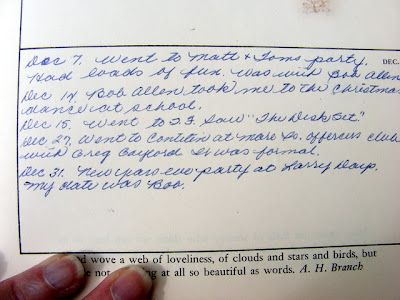 Dec 7. Went to Matt & Toms party.
DEC.
Had loads of fun. Was with Bob Allen
Dec 14. Bob Allen took me to the Christmas
dance at school.
Dec 15. Went to Saw "The Desk Set"
Dec 27. Went to at officers club
with Greg It was formal.
Dec 31. New years eve party at Larry
My date was Bob.
d wove a web of loveliness, of clouds and stars and birds, but
e not g at all so beautiful as words. A. H. Branch